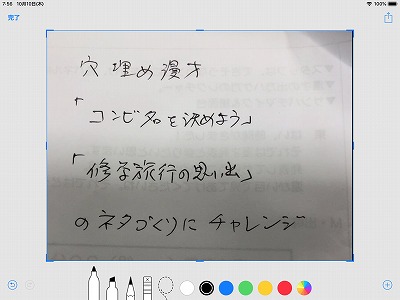 7:56 10月10日(木)
100%
完了
穴埋め漫才
「コンビ名を決めよう」
「修学旅行の思い出」
のネタづくりに チャレンジ